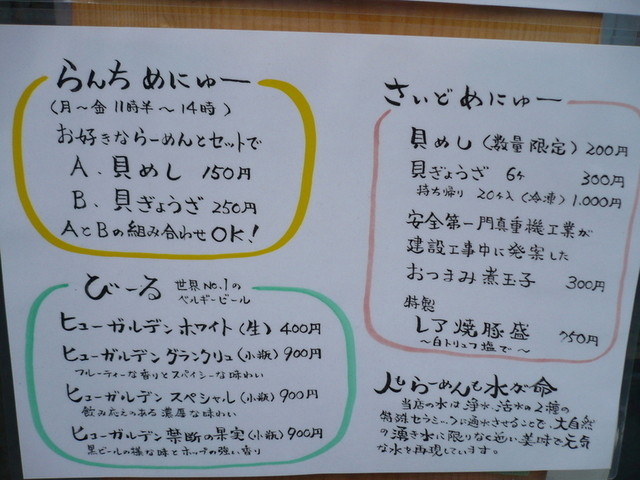 らんち めにゅー
(月〜金 11時半〜14時)
お好きならーめんとセットで
A. 貝めし 150円
B. 貝ぎょうざ 250円
AとBの組み合わせOK!
びーる 世界No.1の
ベルギービール
ヒューガルデン ホワイト(生) 400円
ヒューガルデン グランクリュ(小瓶) 900円
フルーティーな香りとスパイシーな味わい
ヒューガルデン スペシャル(小瓶) 900円
飲み応えのある濃厚な味わい
ヒューガルデン 禁断の果実(小瓶) 900円
黒ビールの強な味とホップの強い香り
さいど めにゅー
貝めし(数量限定) 200円
貝ぎょうざ 6ヶ 300円
持ち帰り 20ヶ入(冷凍) 1.000円
安全第一門真重機工業が
建設工事中に発案した
おつまみ煮玉子 300円
特製
レア焼豚盛 750円
〜白トリュフ塩で〜
人もらーめんも水が命
当店の水は浄水、活水の2種の
特殊セラミックに通水させることで、大自然
の湧き水に限りなく近い美味で元気
な水を再現しています。